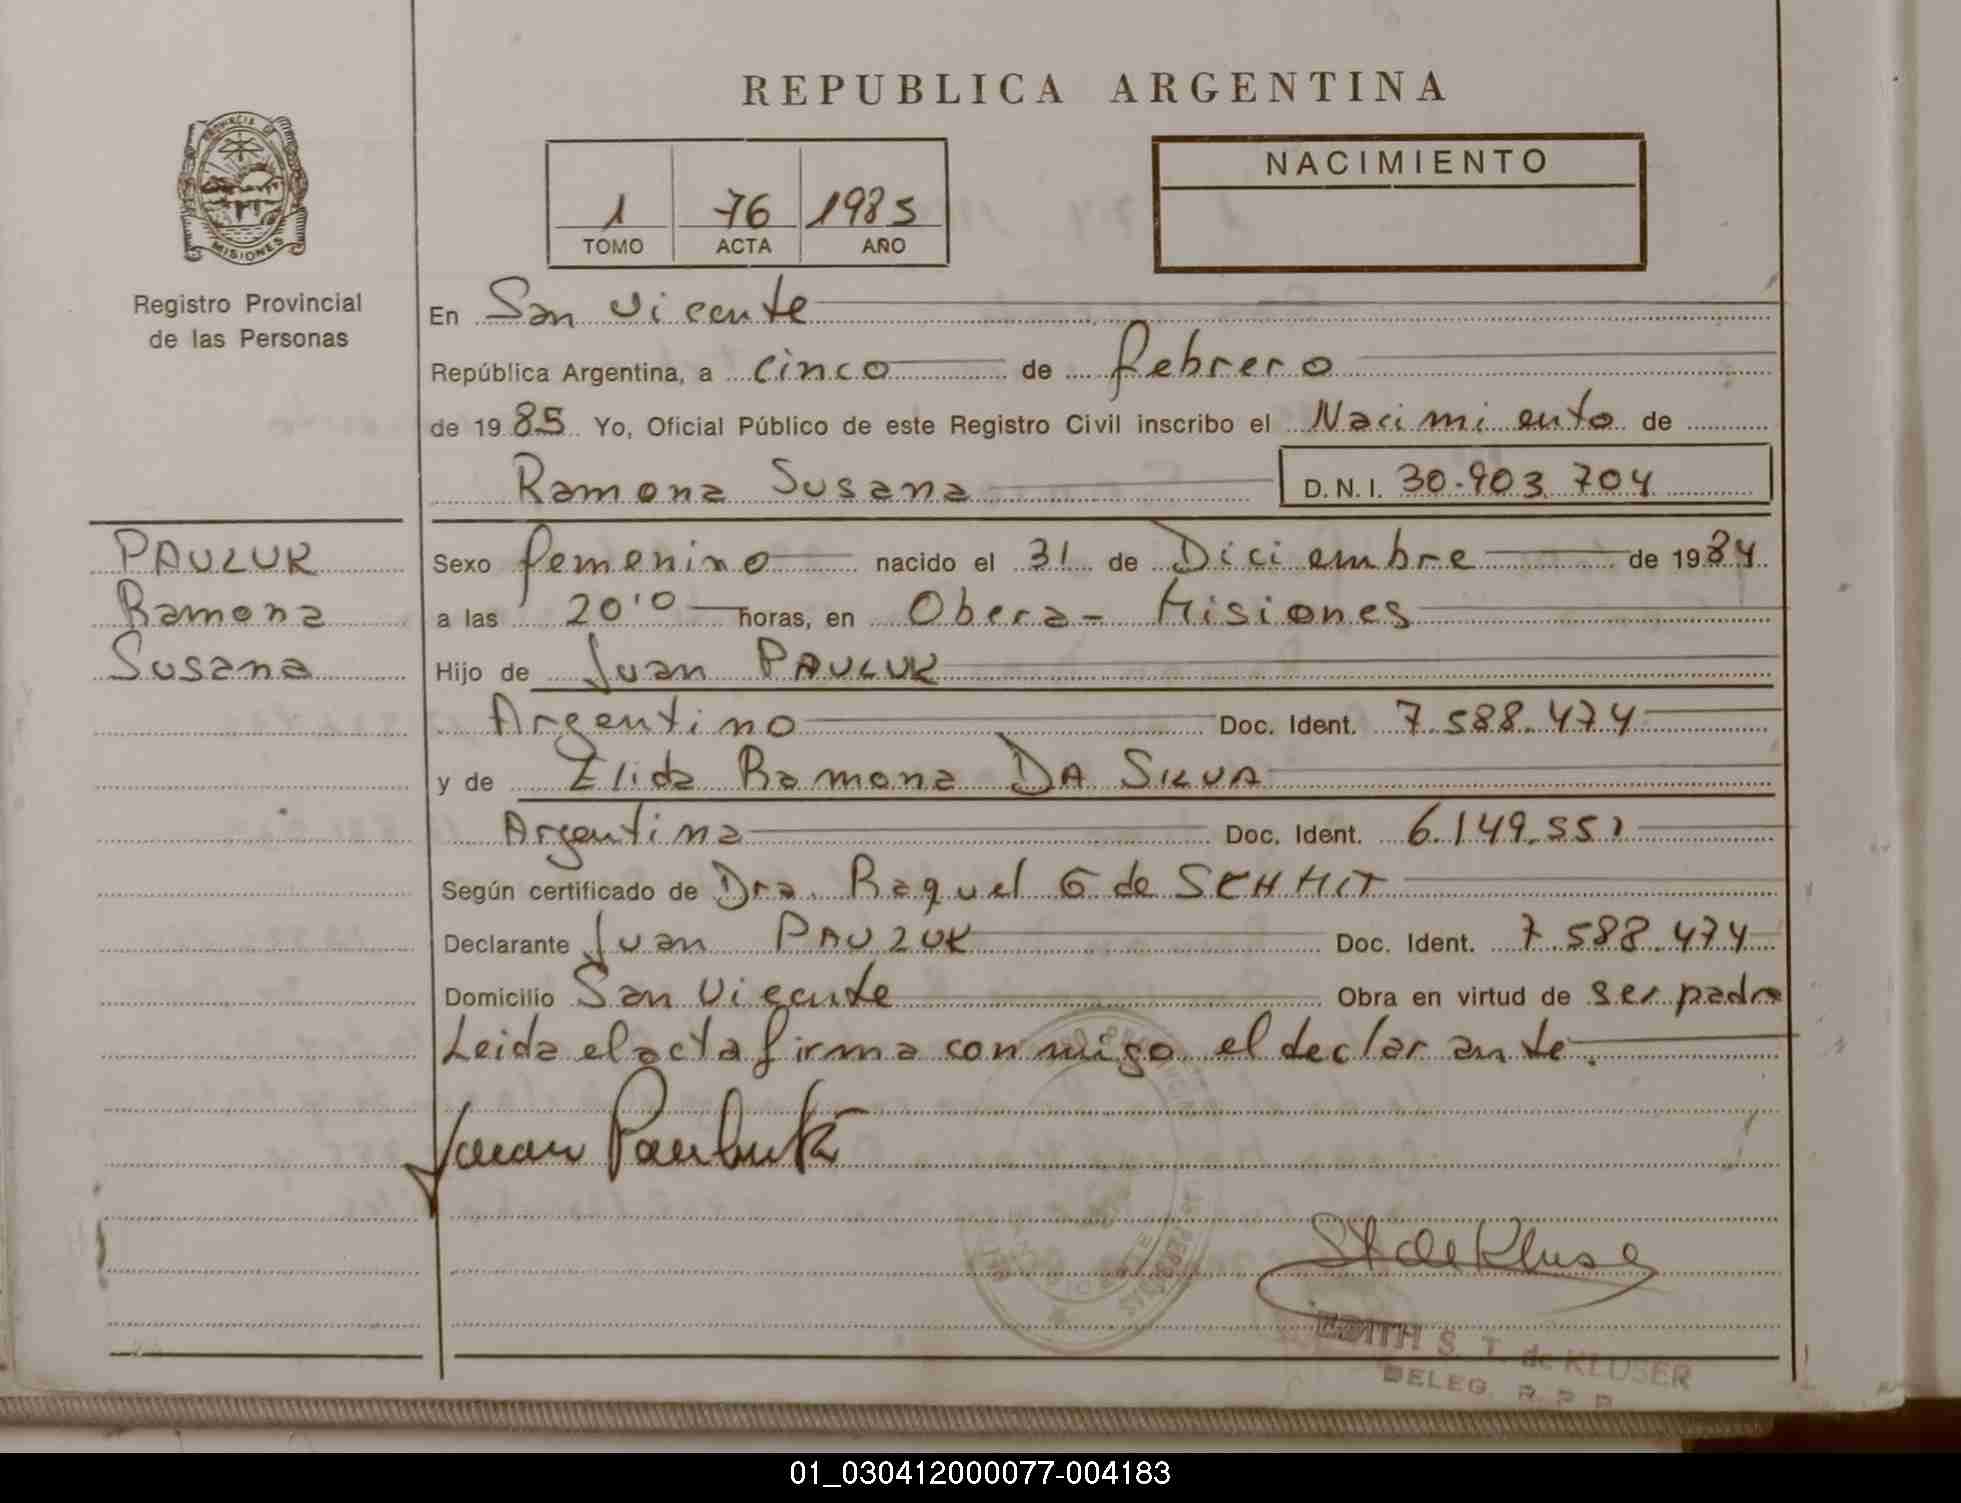 REPUBLICA ARGENTINA
PROVINCIA DE
MISIONES
Registro Provincial
de las Personas
1 76 1985
TOMO ACTA AÑO
NACIMIENTO
En San Vicente
República Argentina, a cinco de febrero
de 1985 Yo, Oficial Público de este Registro Civil inscribo el Nacimiento de
Ramona Susana D.N.I. 30.903.704
PAULUK
Ramona
Susana
Sexo femenino nacido el 31 de Diciembre de 1984
a las 20'0 horas, en Obera - Misiones
Hijo de Juan PAULUK
Argentino Doc. Ident. 7.588.474
y de Elida Ramona DA SILVA
Argentina Doc. Ident. 6.149.551
Según certificado de Dra. Raquel G de SCHMIT
Declarante Juan PAULUK Doc. Ident. 7.588.474
Domicilio San Vicente Obra en virtud de ser padre
Leida el acta firma con migo el declarante.
Juan Pauluk
EDITH S. T. de KLUSER
DELEG. R. P. P.
01_030412000077-004183